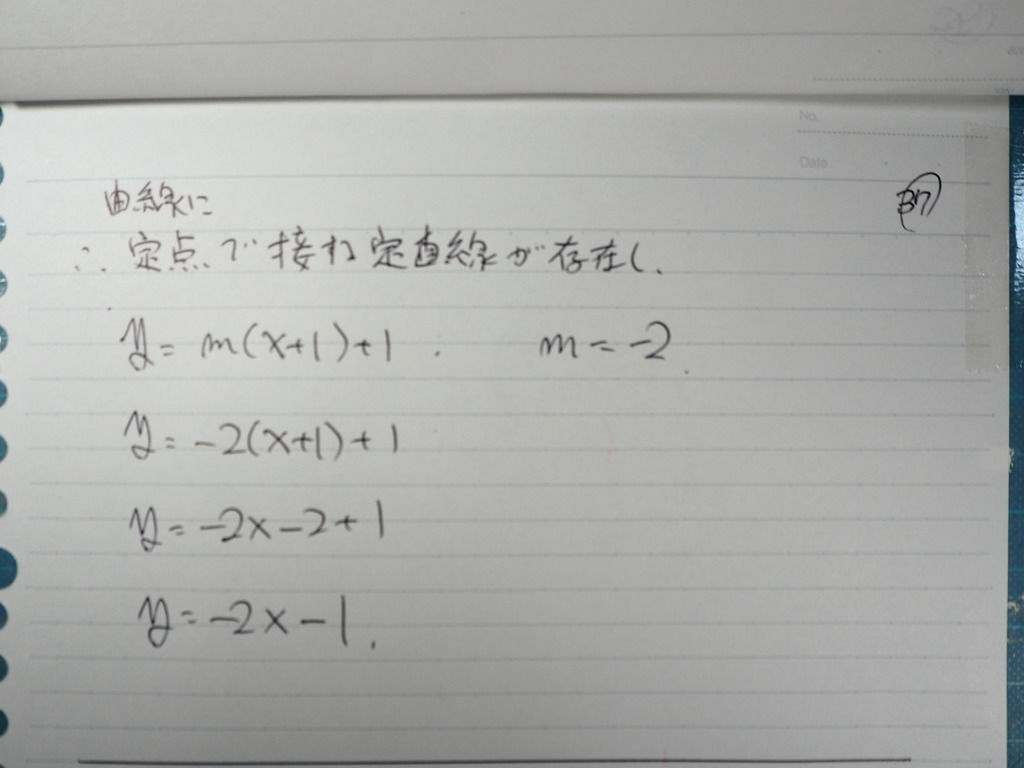 No.
Date
37
曲線に
∴ 定点で接する定直線が存在し、
y = m(x+1)+1. m = -2.
y = -2(x+1)+1
y = -2x-2+1
y = -2x-1.